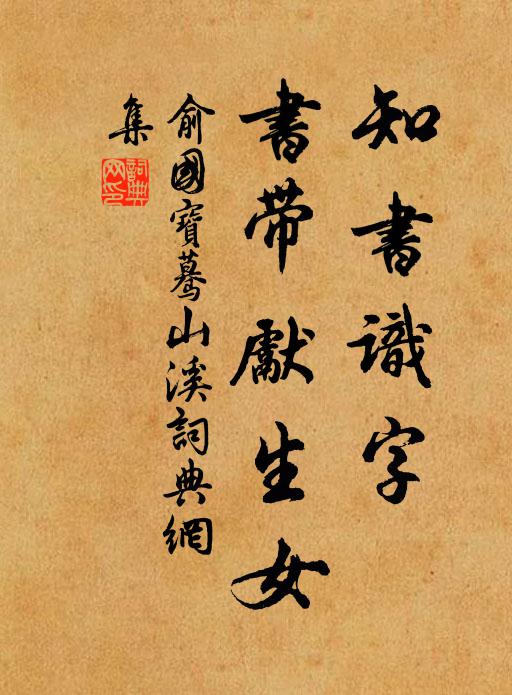 知書識字
書帶獻生女
俞國寶驀山溪詞典網
集
詞典
网印